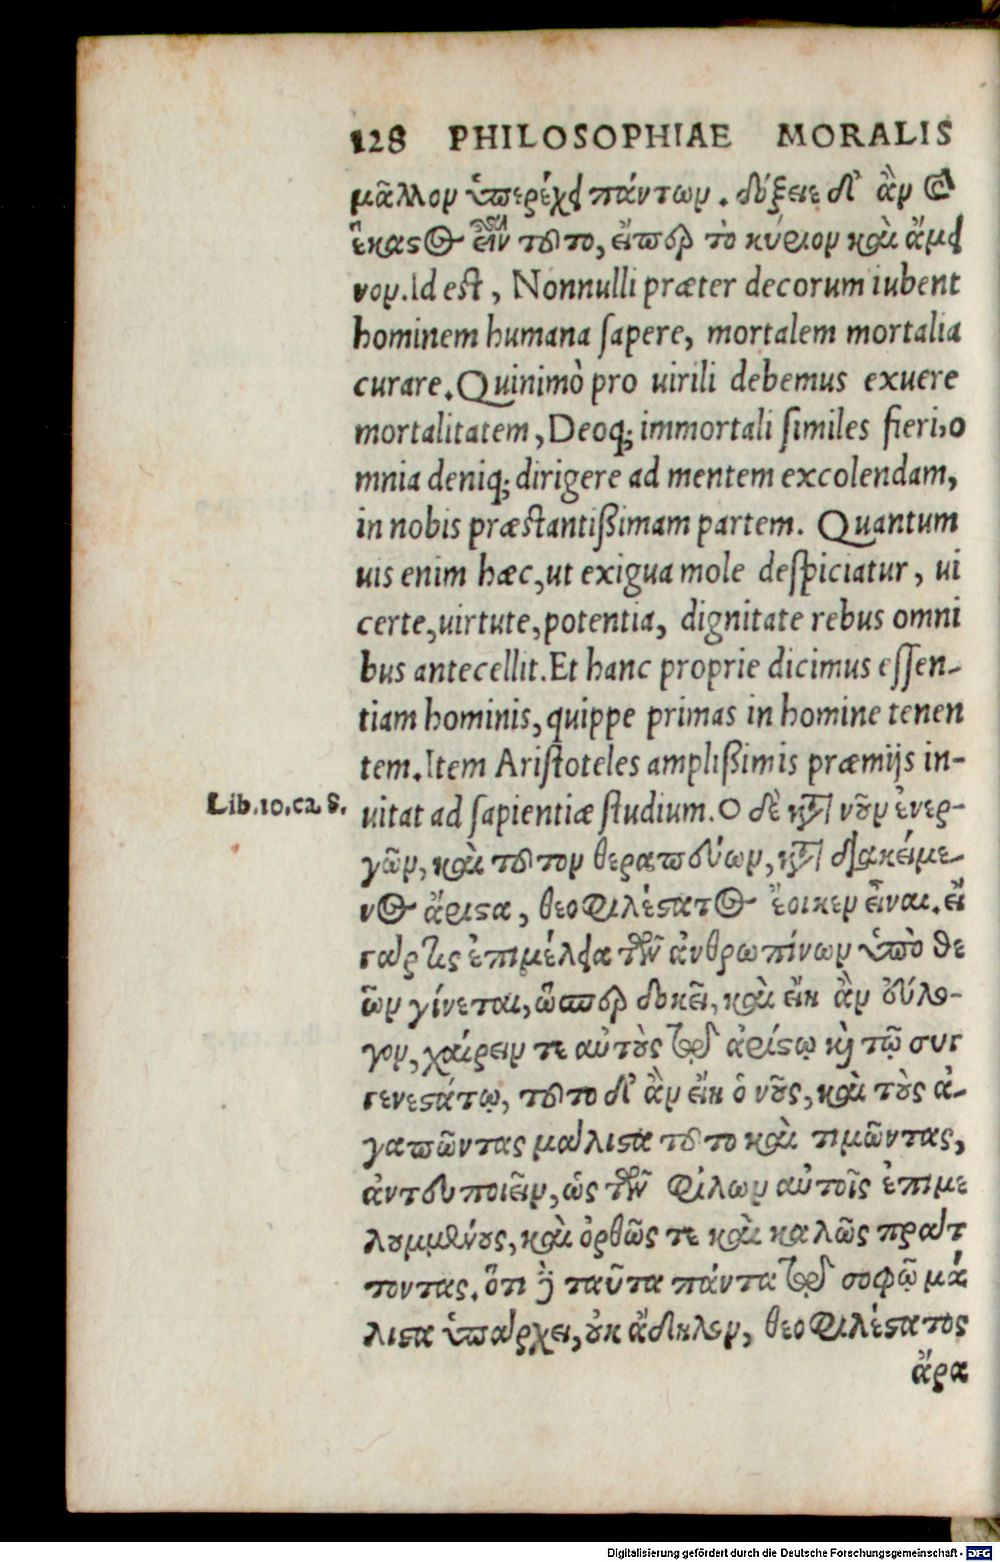 128 PHILOSOPHIAE MORALIS
μᾶλλον ὑπερέχει πάντων. δόξειε δ' ἂν καὶ
ἕκαστος εἶναι τοῦτο, εἴπερ τὸ κύριον καὶ ἄμει
νον. Id est, Nonnulli præter decorum iubent
hominem humana ſapere, mortalem mortalia
curare. Quinimò pro uirili debemus exuere
mortalitatem, Deoq; immortali ſimiles fieri, o
mnia deniq; dirigere ad mentem excolendam,
in nobis præſtantißimam partem. Quantum
uis enim hæc, ut exigua mole deſpiciatur, ui
certe, uirtute, potentia, dignitate rebus omni
bus antecellit. Et hanc proprie dicimus eſſen-
tiam hominis, quippe primas in homine tenen
tem. Item Ariſtoteles amplißimis præmijs in-
Lib. 10. ca. 8.
uitat ad ſapientiæ ſtudium. Ο δὲ κατὰ νοῦν ἐνερ-
γῶν, καὶ τοῦτον θεραπεύων, καὶ διακείμε-
νος ἄριστα, θεοφιλέστατος ἔοικεν εἶναι. εἴ
γάρ τις ἐπιμέλεια τῶν ἀνθρωπίνων ὑπὸ θε
ῶν γίνεται, ὥσπερ δοκεῖ, καὶ εἴη ἂν εὔλο-
γον, χαίρειν τε αὐτοὺς τῷ ἀρίστῳ καὶ τῷ συγ
γενεστάτῳ, τοῦτο δ' ἂν εἴη ὁ νοῦς, καὶ τοὺς ἀ-
γαπῶντας μάλιστα τοῦτο καὶ τιμῶντας,
ἀντευποιεῖν, ὡς τῶν φίλων αὐτοῖς ἐπιμε
λουμένους, καὶ ὀρθῶς τε καὶ καλῶς πράτ
τοντας. ὅτι δὲ ταῦτα πάντα τῷ σοφῷ μά
λιστα ὑπάρχει, οὐκ ἄδηλον, θεοφιλέστατος
ἄρα
Digitalisierung gefördert durch die Deutsche Forschungsgemeinschaft - DFG